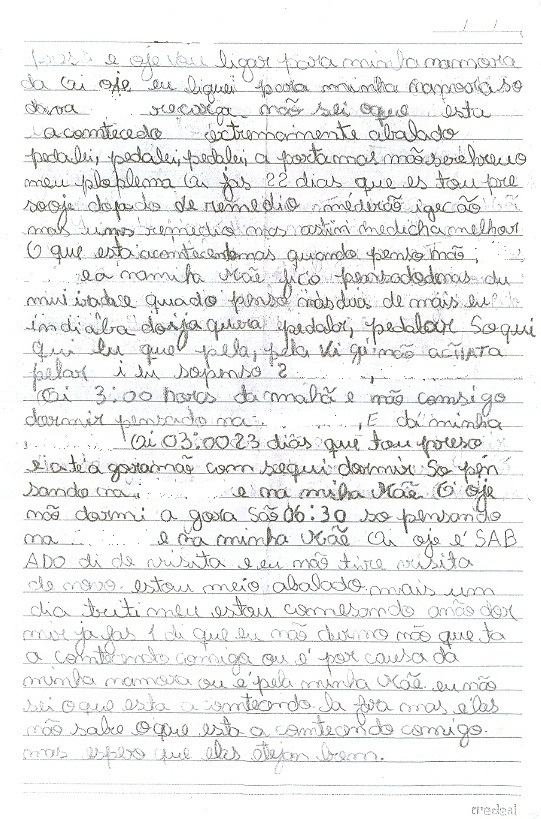 e oje vou ligar para minha namora
da Oi oje eu liguei para minha namora so
dava recarga não sei oque esta
acomtecedo extremamente abalado
pedalei, pedalei, pedalei, a porta mas não
meu ploplema Oi fas 22 dias que es tou pre
so oje dopado de remedio mederão igecão
mas uns remedio mas melhor
O que esta acontecen mas quando penso não,
e a na minha Mãe fico
quado penso mas dus de mais eu
pedalar, pedalar So qui
qui eu que não
pelar i eu so penso ?
Oi 3:00 horas da manhã e não comsigo
dormir pensado na , E da minha
Oi 03:00 23 dias que tou preso
e até a gora não com segui dormir So pen
sando na e na minha Mãe O oje
não dormi a gora São 06:30 so pensando
na e na minha Mãe Oi oje é SAB
ADO di de visita e eu não tive visita
de novo. estou meio abalado mais um
dia meu estou comesando a não dor
mir ja fas 1 di que eu não durmo não que ta
a comtecendo comigo ou é por causa da
minha namora ou é pela minha Mãe. eu não
sei o que esta a comtecendo la fora mas eles
não sabe o que esta a comtecendo comigo.
mas espero que eles etejan bem.
credeal